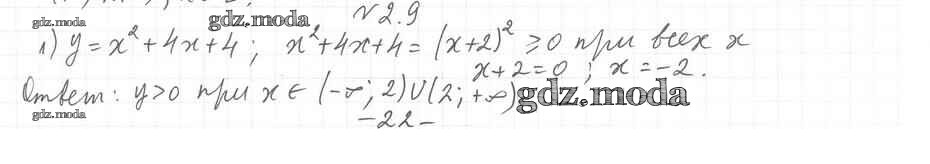 №2.9
gdz.moda gdz.moda
1) y = x² + 4x + 4 ; x² + 4x + 4 = (x+2)² ≥ 0 при всех x
x + 2 = 0 ; x = -2 .
Ответ: y > 0 при x ∈ (-∞; 2) ∪ (2; +∞) gdz.moda
gdz.moda
-22-